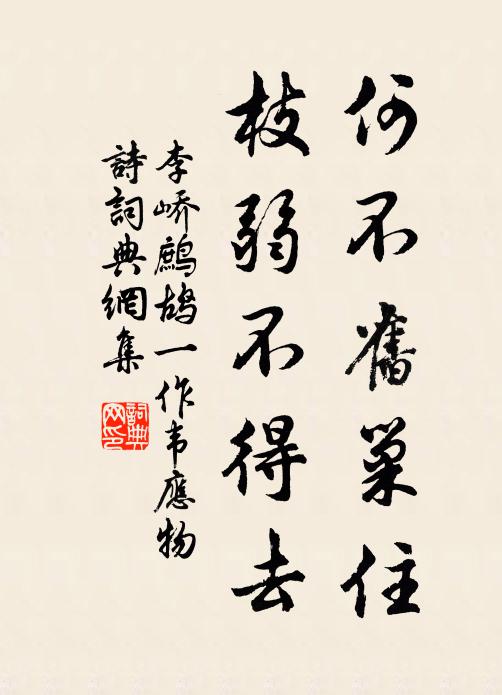 何不舊巢住
枝弱不得去
李嶠鷓鴣一作韦應物
詩詞典網集
詞典网印